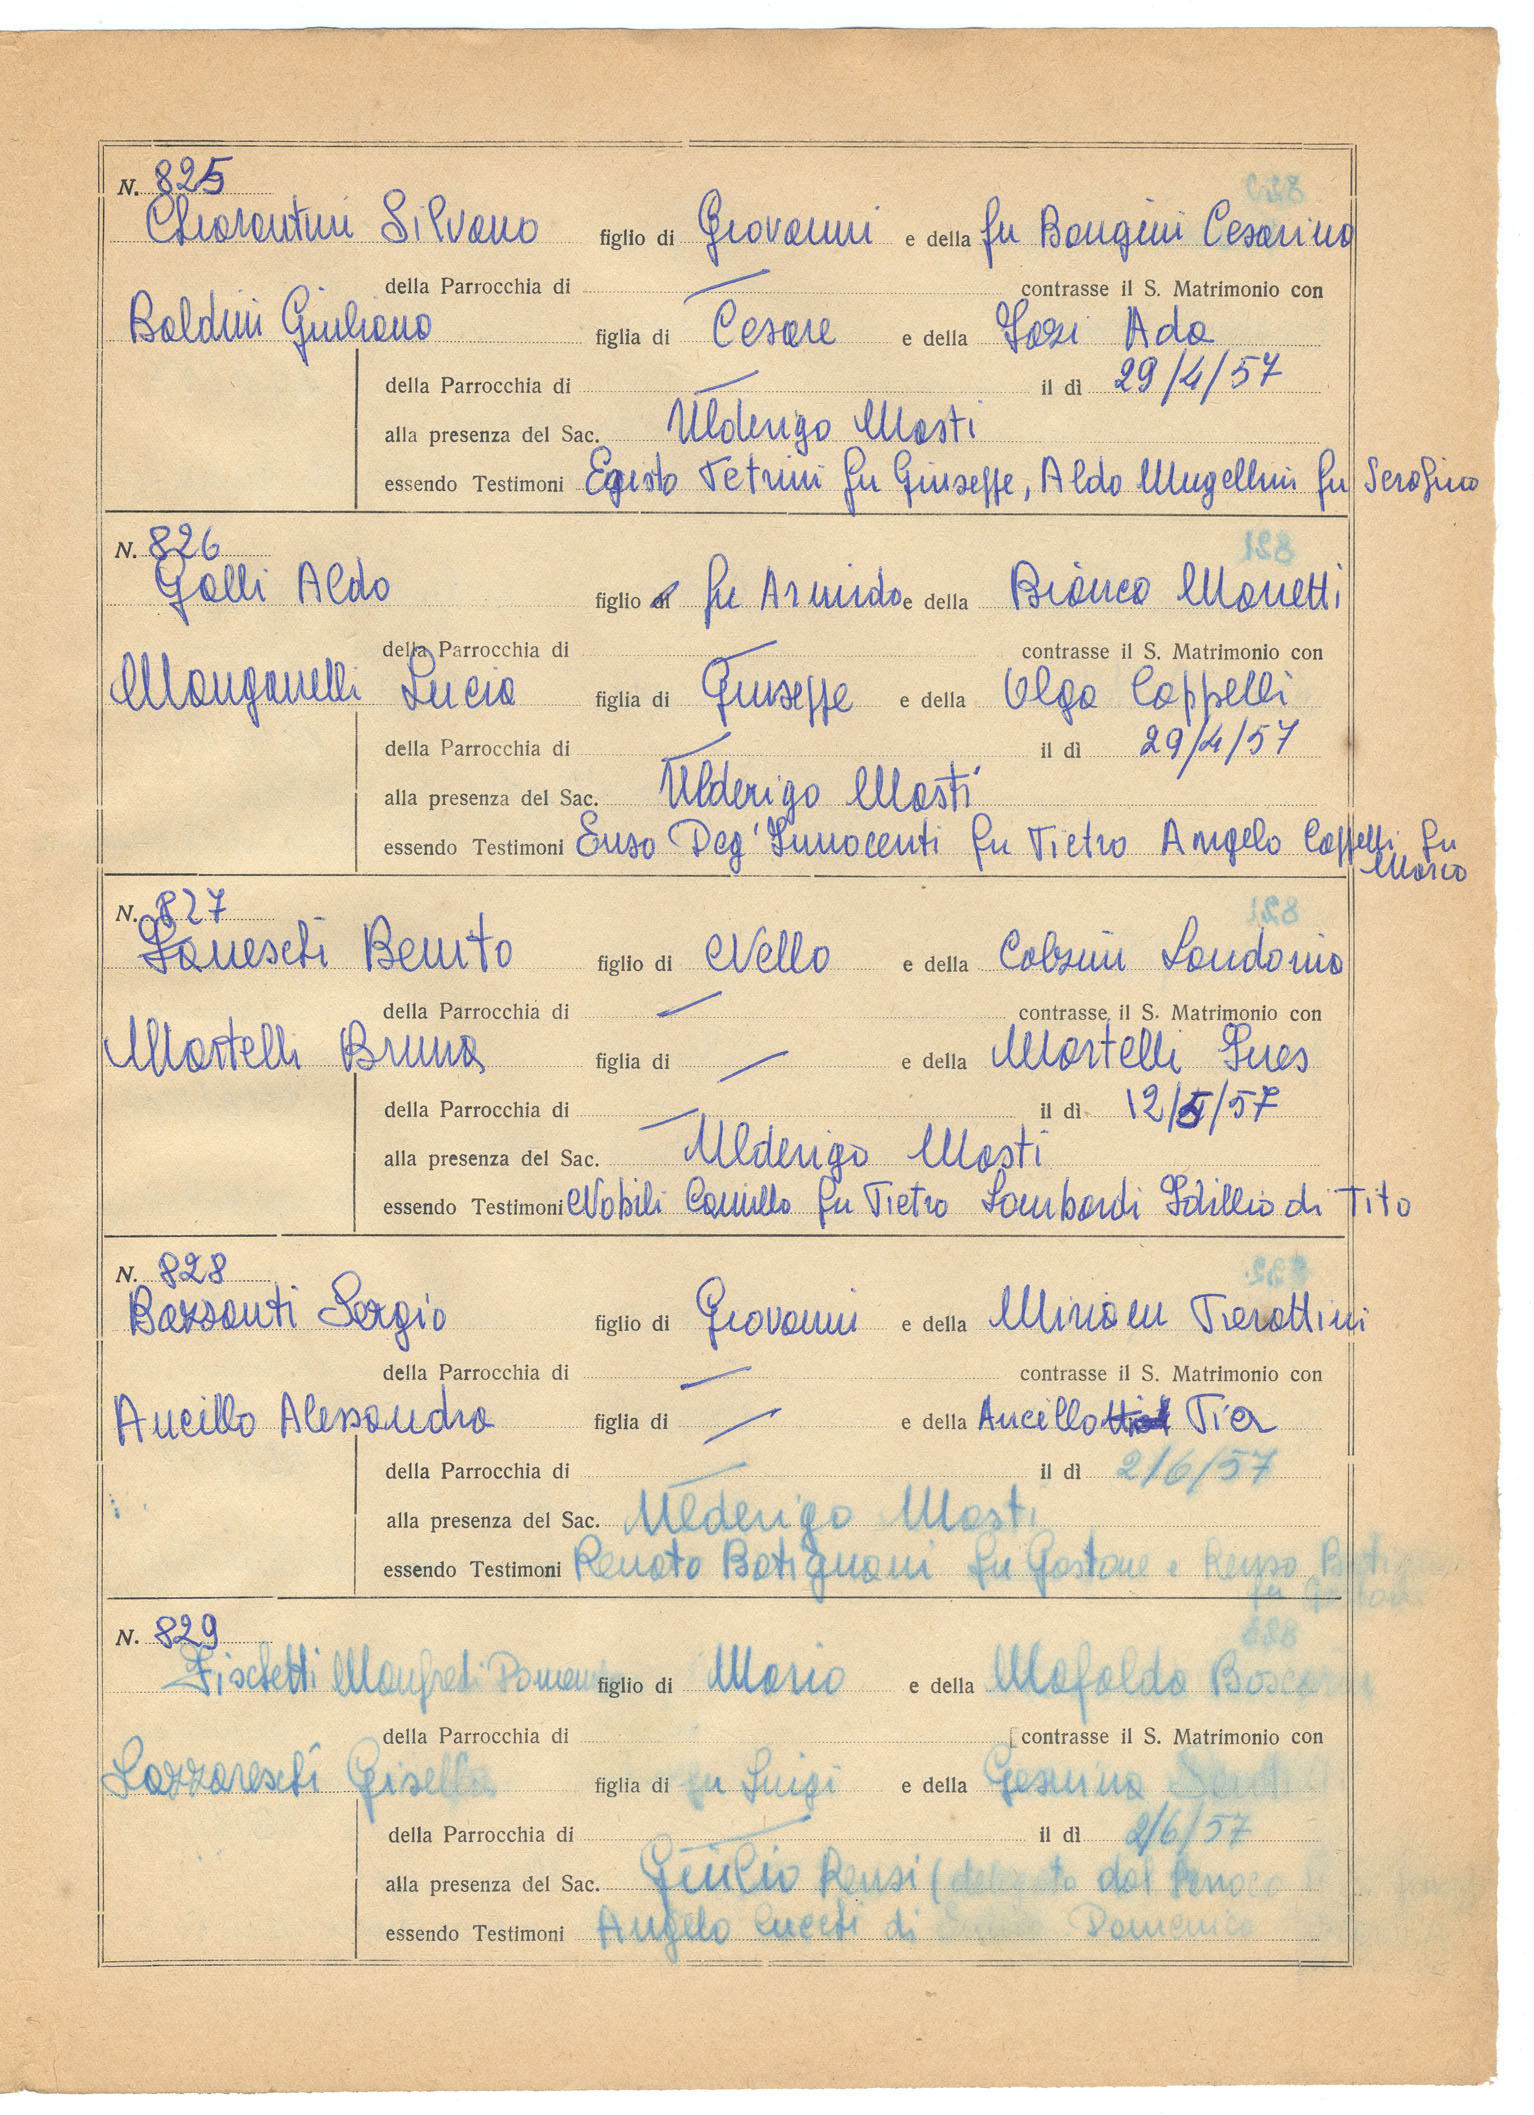 N. 825
Chiarantini Silvano figlio di Giovanni e della fu Bongini Cesarina
della Parrocchia di — contrasse il S. Matrimonio con
Baldini Giuliana figlia di Cesare e della Iozi Ada
della Parrocchia di — il dì 29/4/57
alla presenza del Sac. Ulderigo Masti
essendo Testimoni Egisto Petrini fu Giuseppe, Aldo Mugellini fu Serafino
N. 826
Galli Aldo figlio di fu Armido e della Bianca Manetti
della Parrocchia di — contrasse il S. Matrimonio con
Manganelli Lucia figlia di Giuseppe e della Olga Cappelli
della Parrocchia di — il dì 29/4/57
alla presenza del Sac. Ulderigo Masti
essendo Testimoni Enzo Deg' Innocenti fu Pietro Angelo Cappelli fu
Marco
N. 827
Faneschi Benito figlio di Nello e della Calzini Landomia
della Parrocchia di — contrasse il S. Matrimonio con
Martelli Bruna figlia di — e della Martelli Ines
della Parrocchia di — il dì 12/5/57
alla presenza del Sac. Ulderigo Masti
essendo Testimoni Nobili Camillo fu Pietro Lombardi Idillio di Tito
N. 828
Bazzanti Sergio figlio di Giovanni e della Miriam Pierattini
della Parrocchia di — contrasse il S. Matrimonio con
Ancillo Alessandra figlia di — e della Ancillo Pia
della Parrocchia di — il dì 2/6/57
alla presenza del Sac. Ulderigo Masti
essendo Testimoni Renato Batignani fu Gastone e Renzo
fu
N. 829
Fischetti Manfredi figlio di Mario e della Mafalda
della Parrocchia di contrasse il S. Matrimonio con
Lazzareschi Gisella figlia di fu Luigi e della Gesuina
della Parrocchia di — il dì 2/6/57
alla presenza del Sac. Giulio Rensi (delegato dal
essendo Testimoni Angelo di Domenico